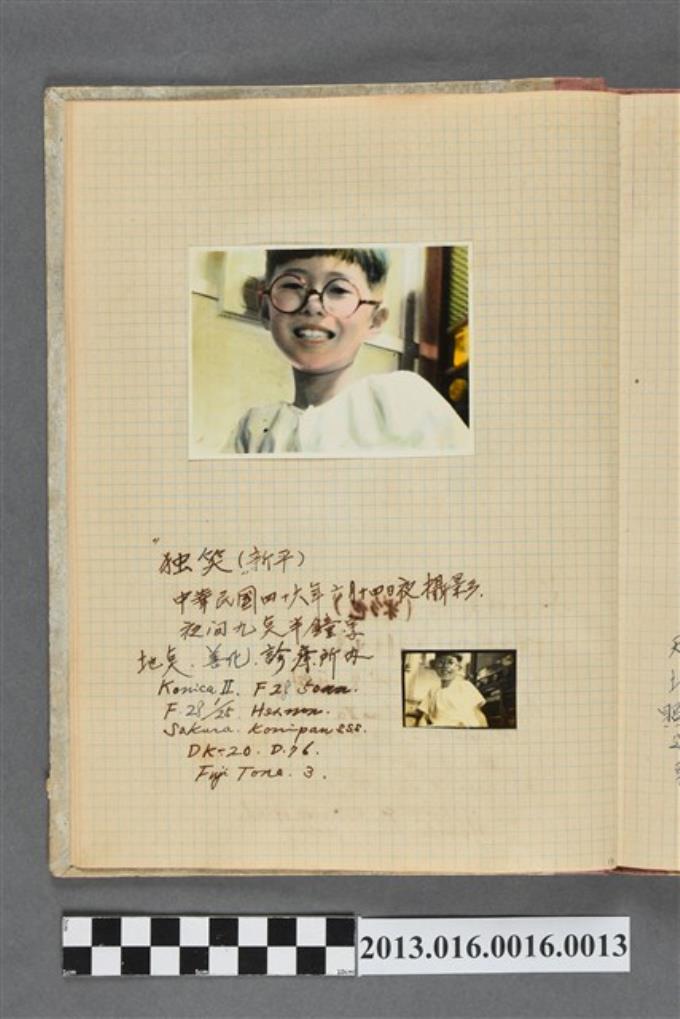 "独笑(新平)
中華民國四十六年六月十四日夜攝影.
夜间九点半鐘
地点.善化.診療所内
Konica II. F 28 50mm.
F. 28 1/25. Hexanon.
Sakura. Konipan SSS.
DK-20. D.76.
Fuji Tone. 3.
2013.016.0016.0013